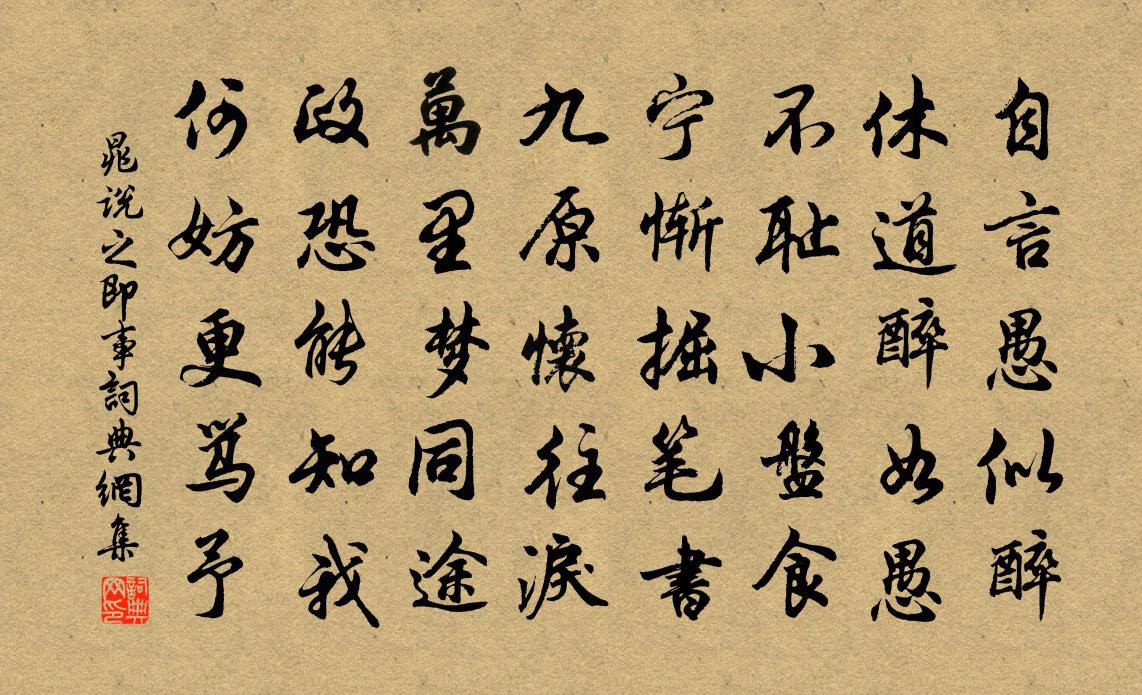 自言愚似醉
休道醉如愚
不耻小盤食
宁惭掘笔書
九原懷往淚
萬里梦同途
政恐能知我
何妨更骂予
晁说之即事詞典網集
詞典网印